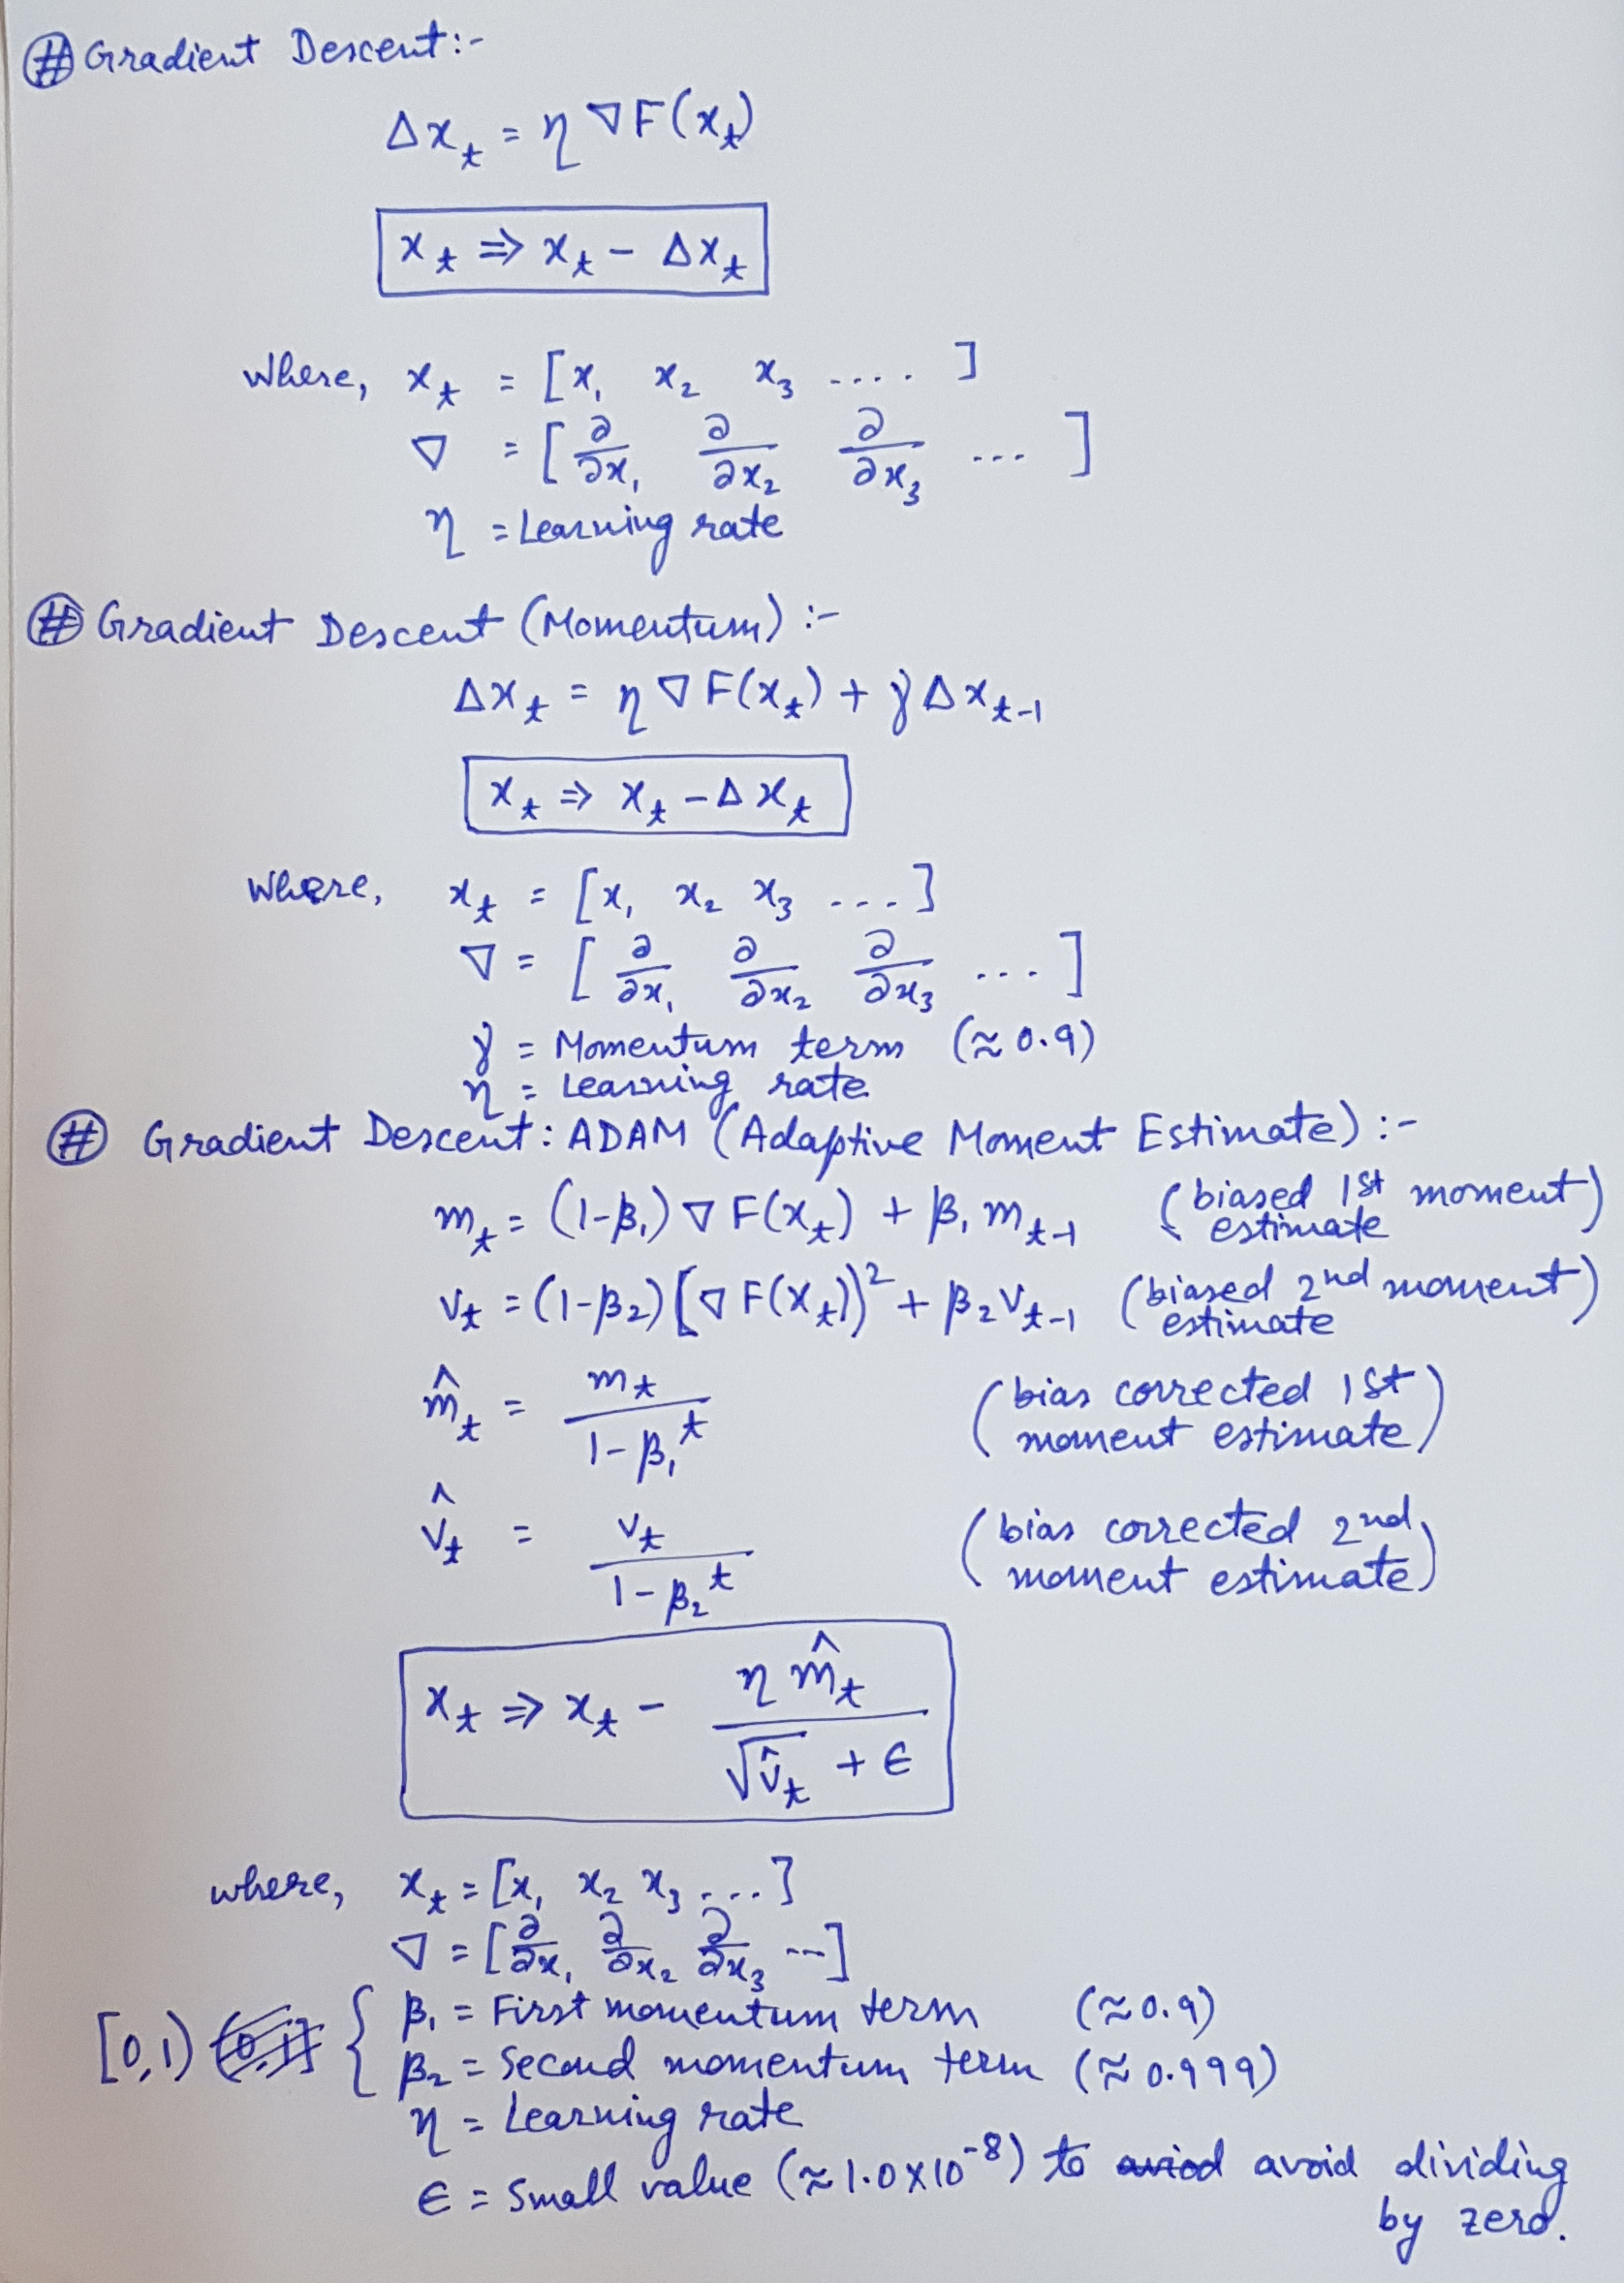 # Gradient Descent:-
Δx_t = η ∇F(x_t)
x_t ⇒ x_t - Δx_t
where, x_t = [x₁ x₂ x₃ ....]
∇ = [∂/∂x₁ ∂/∂x₂ ∂/∂x₃ ...]
η = Learning rate
# Gradient Descent (Momentum) :-
Δx_t = η ∇F(x_t) + γΔx_{t-1}
x_t ⇒ x_t - Δx_t
Where, x_t = [x₁ x₂ x₃ ...]
∇ = [∂/∂x₁ ∂/∂x₂ ∂/∂x₃ ...]
γ = Momentum term (≈ 0.9)
η = Learning rate
# Gradient Descent: ADAM (Adaptive Moment Estimate) :-
m_t = (1-β₁) ∇F(x_t) + β₁ m_{t-1} (biased 1st moment estimate)
v_t = (1-β₂) [∇F(x_t)]² + β₂ v_{t-1} (biased 2nd moment estimate)
m̂_t = m_t / (1-β₁^t) (bias corrected 1st moment estimate)
v̂_t = v_t / (1-β₂^t) (bias corrected 2nd moment estimate)
x_t ⇒ x_t - η m̂_t / (√v̂_t + ϵ)
where, x_t = [x₁ x₂ x₃ ...]
∇ = [∂/∂x₁ ∂/∂x₂ ∂/∂x₃ ...]
[0,1) { β₁ = First momentum term (≈0.9)
β₂ = Second momentum term (≈ 0.999)
η = Learning rate
ϵ = Small value (≈ 1.0×10⁻⁸) to avoid dividing
by zero.